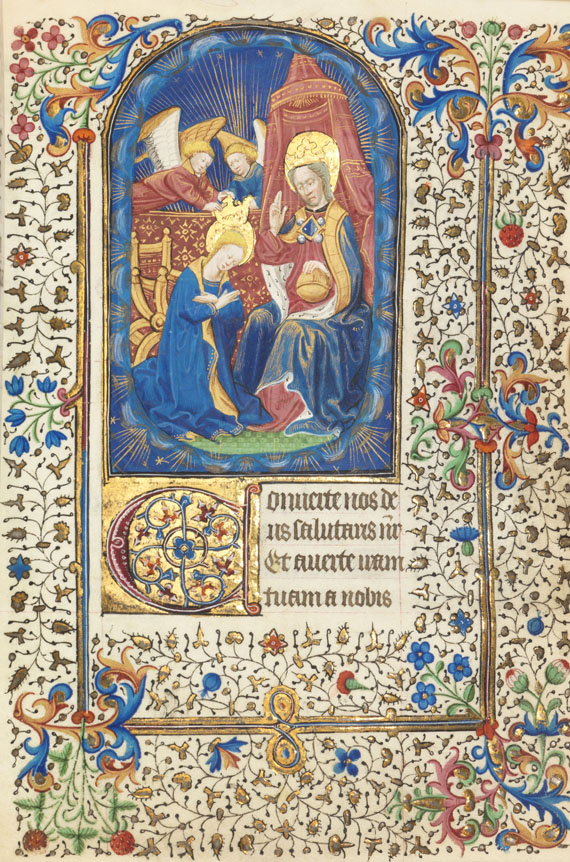 Conuerte nos de
us salutaris nr̄
Et auerte iram
tuam a nobis